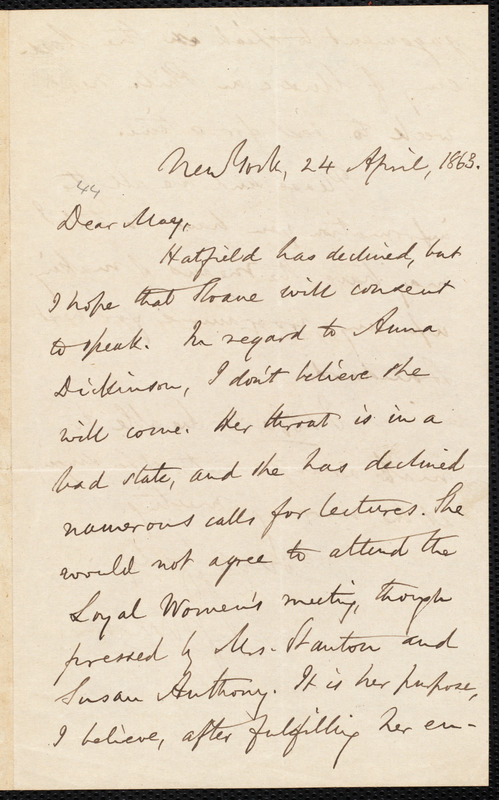 New York, 24 April, 1863.
44
Dear May,
Hatfield has declined, but
I hope that Sloane will consent
to speak. In regard to Anna
Dickinson, I don't believe she
will come. Her throat is in a
bad state, and she has declined
numerous calls for lectures. She
would not agree to attend the
Loyal Women's meeting, though
pressed by Mrs. Stanton and
Susan Anthony. It is her purpose,
I believe, after fulfilling her en-